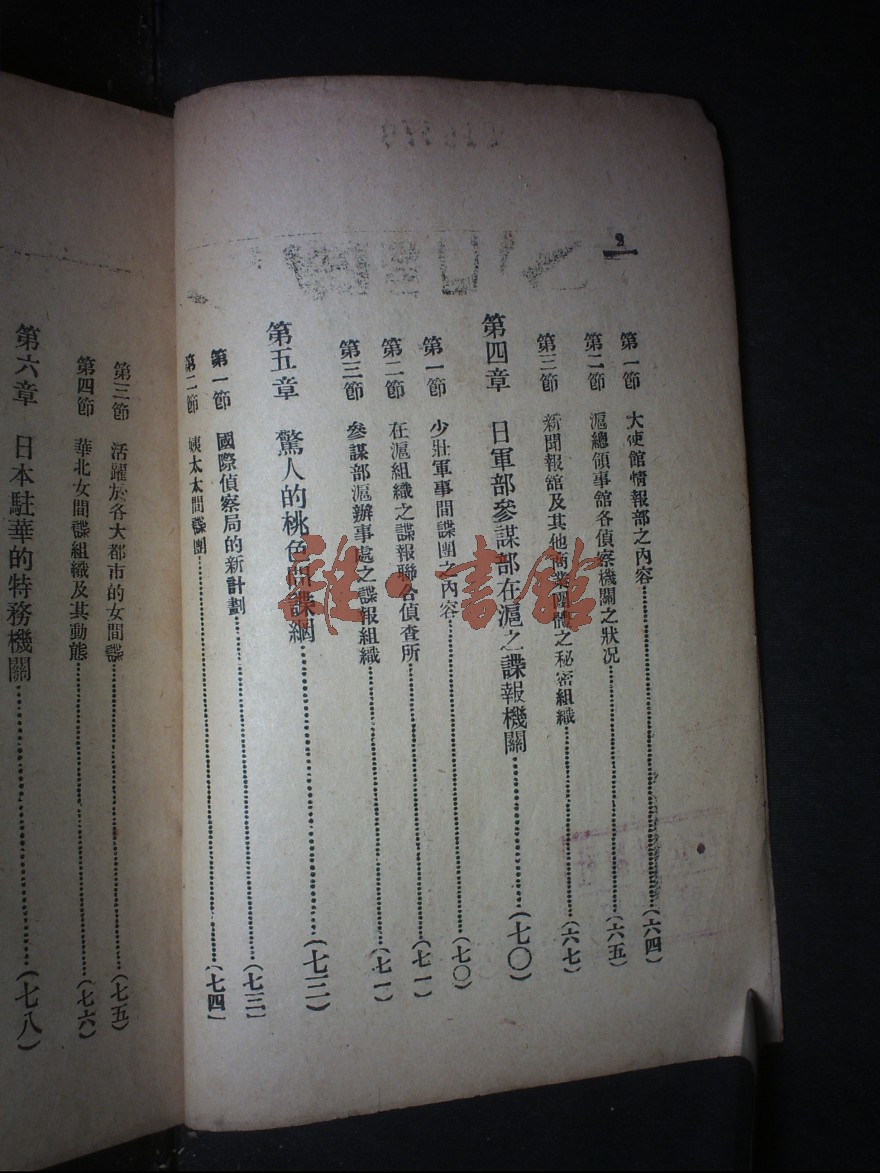 2
第一節 大使館情報部之內容………(六四)
第二節 滬總領事館各偵察機關之狀況………(六五)
第三節 新聞報館及其他商業團體之秘密組織………(六七)
第四章 日軍部參謀部在滬之諜報機關………(七〇)
第一節 少壯軍事間諜團之內容………(七〇)
第二節 在滬組織之諜報聯合偵查所………(七一)
第三節 參謀部滬辦事處之諜報組織………(七一)
第五章 驚人的桃色間諜網………(七三)
第一節 國際偵察局的新計劃………(七三)
第二節 姨太太間諜團………(七四)
第三節 活躍於各大都市的女間諜………(七五)
第四節 華北女間諜組織及其動態………(七六)
第六章 日本駐華的特務機關………(七八)
雜·書館